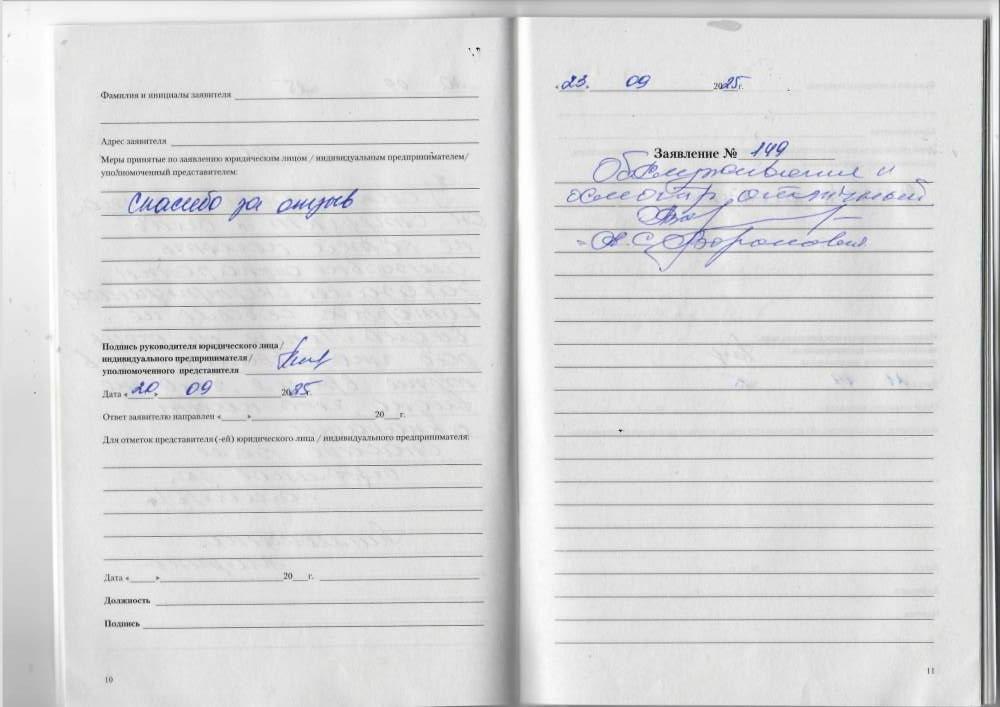 Фамилия и инициалы заявителя
Адрес заявителя
Меры принятые по заявлению юридическим лицом / индивидуальным предпринимателем/
уполномоченным представителем:
Спасибо за отзыв
Подпись руководителя юридического лица/
индивидуального предпринимателя/
уполномоченного представителя
Дата «20» 09 2025г.
Ответ заявителю направлен «____» 20___г.
Для отметок представителя(-ей) юридического лица / индивидуального предпринимателя:
Дата «____» 20___г.
Должность
Подпись
10
«23. 09 2025г.
Заявление № 149
и
осмотр отличный
11